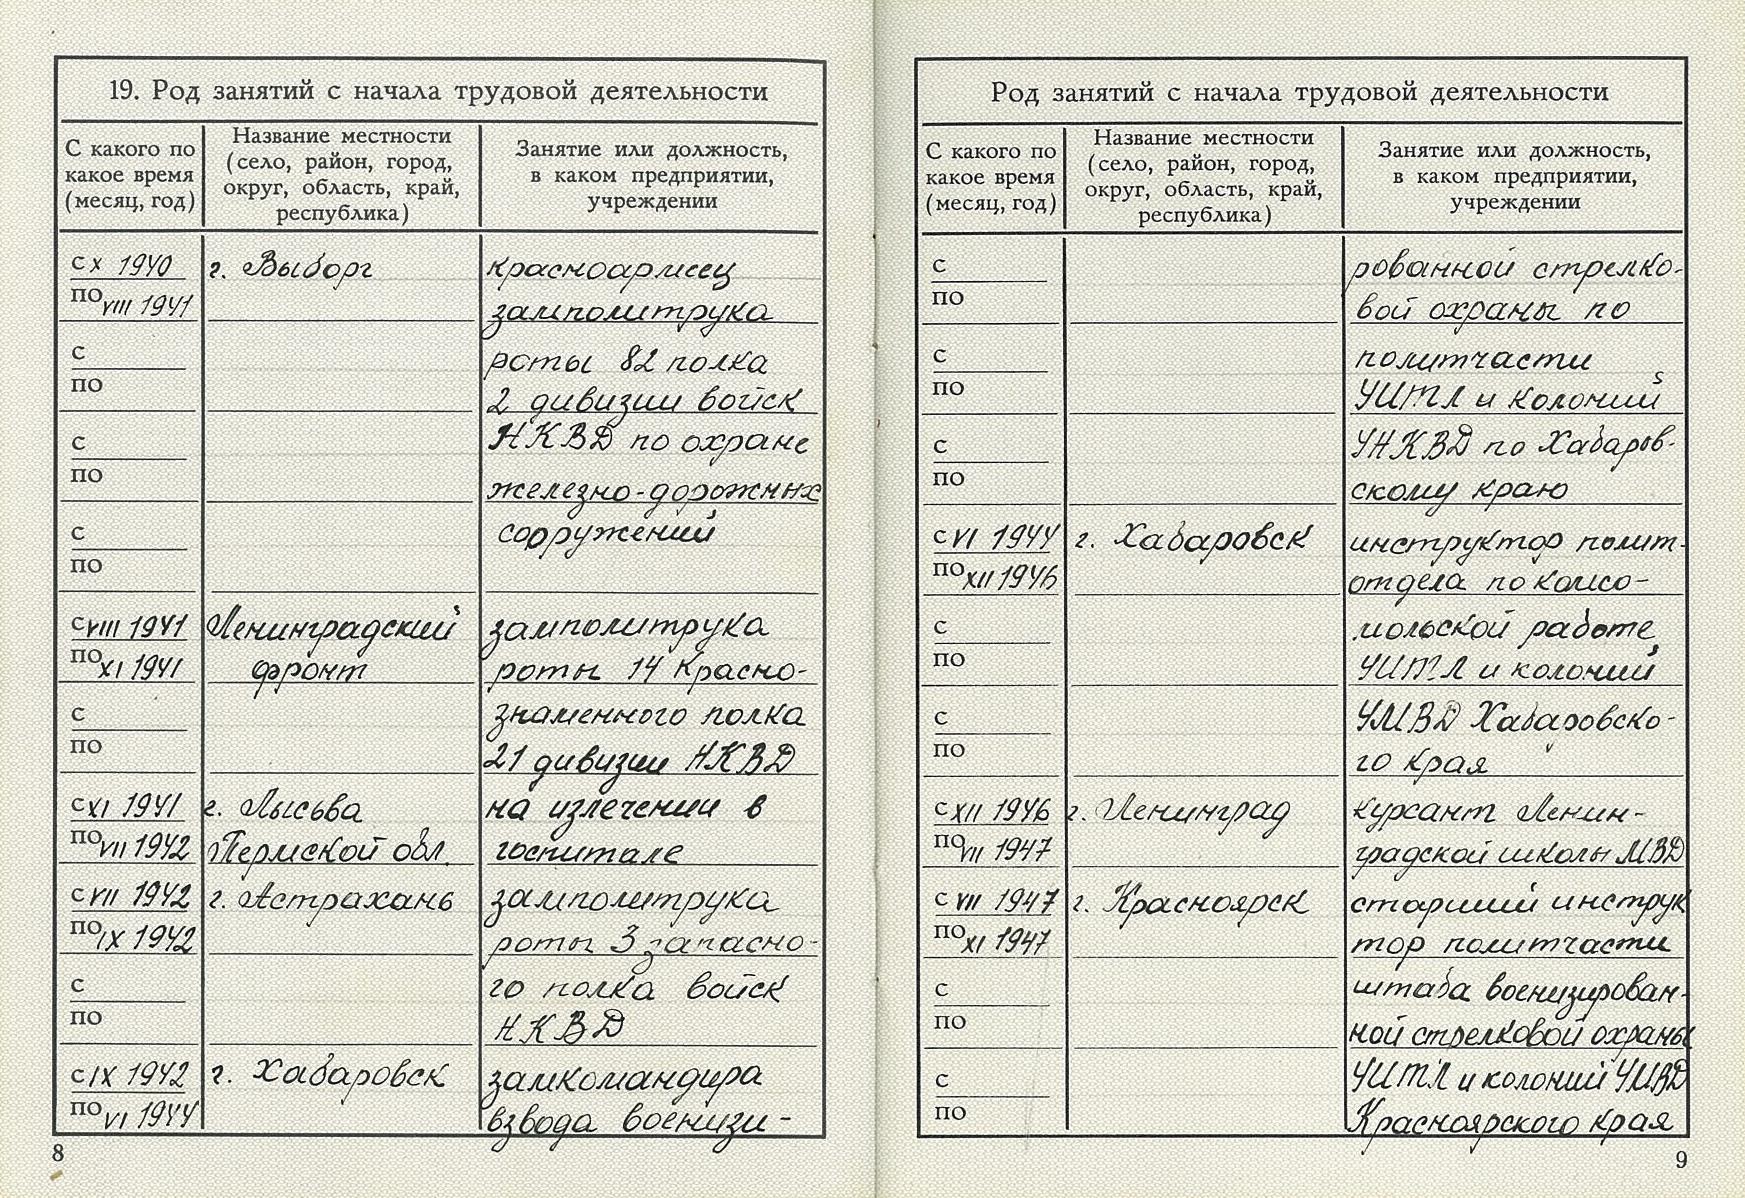 19. Род занятий с начала трудовой деятельности
С какого по какое время (месяц, год)
Название местности (село, район, город, округ, область, край, республика)
Занятие или должность, в каком предприятии, учреждении
с X 1940 г. Выборг красноармеец
по VIII 1941 замполитрука
с роты 82 полка
по 2 дивизии войск
с НКВД по охране
по железно-дорожных
с сооружений
по
с VIII 1941 Ленинградский замполитрука
по XI 1941 фронт роты 14 Красно-
с знаменного полка
по 21 дивизии НКВД
с XI 1941 г. Лысьва на излечении в
по VII 1942 Пермской обл. госпитале
с VII 1942 г. Астрахань замполитрука
по IX 1942 роты 3 запасно-
с го полка войск
по НКВД
с IX 1942 г. Хабаровск замкомандира
по VI 1944 взвода военизи-
8
Род занятий с начала трудовой деятельности
С какого по какое время (месяц, год)
Название местности (село, район, город, округ, область, край, республика)
Занятие или должность, в каком предприятии, учреждении
с рованной стрелко-
по вой охраны по
с политчасти
по УИТЛ и колоний
с УНКВД по Хабаров-
по скому краю
с VI 1944 г. Хабаровск инструктор полит-
по XII 1946 отдела по комсо-
с мольской работе
по УИТЛ и колоний
с УМВД Хабаровско-
по го края
с XII 1946 г. Ленинград курсант Ленин-
по VII 1947 градской школы МВД
с VII 1947 г. Красноярск старший инструк
по XI 1947 тор политчасти
с штаба военизирован-
по ной стрелковой охраны
с УИТЛ и колоний УМВД
по Красноярского края
9